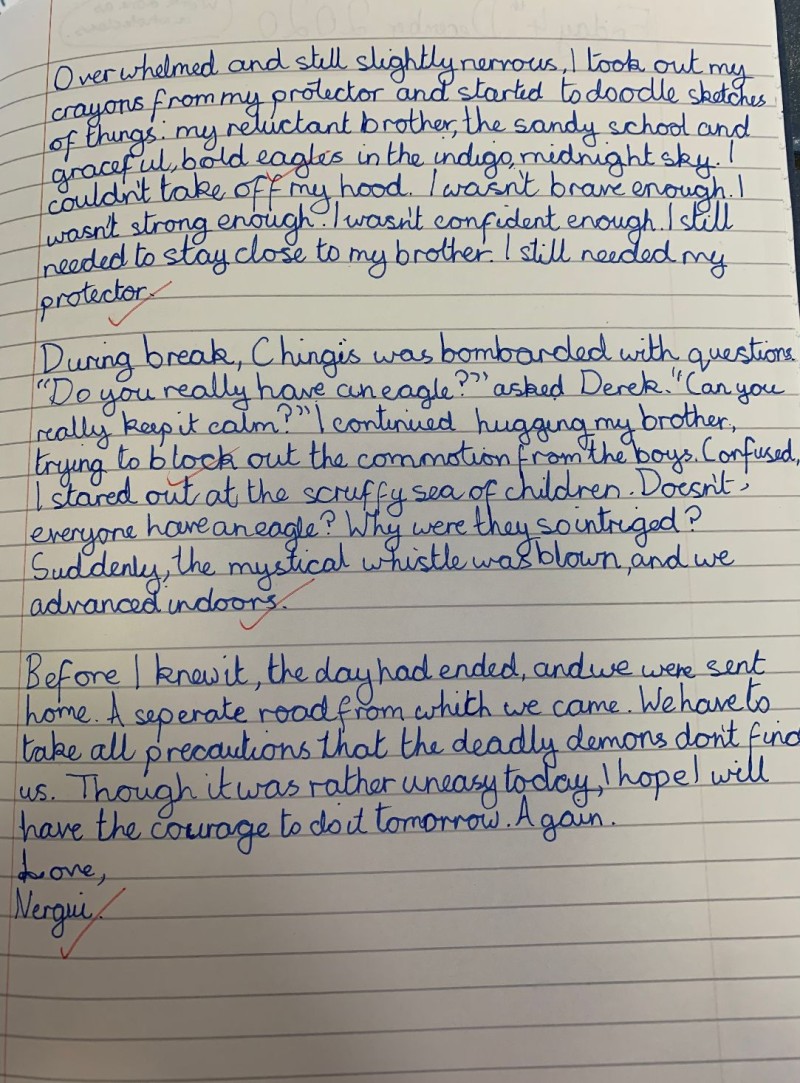 Overwhelmed and still slightly nervous, I took out my
crayons from my protector and started to doodle sketches
of things: my reluctant brother, the sandy school and
graceful, bold eagles in the indigo, midnight sky. I
couldn't take off my hood. I wasn't brave enough. I
wasn't strong enough. I wasn't confident enough. I still
needed to stay close to my brother. I still needed my
protector.
During break, Chingis was bombarded with questions.
"Do you really have an eagle?" asked Derek. "Can you
really keep it calm?" I continued hugging my brother,
trying to block out the commotion from the boys. Confused,
I stared out at the scruffy sea of children. Doesn't
everyone have an eagle? Why were they so intriged?
Suddenly, the mystical whistle was blown, and we
advanced indoors.
Before I knew it, the day had ended, and we were sent
home. A seperate road from which we came. We have to
take all precautions that the deadly demons don't find
us. Though it was rather uneasy today, I hope I will
have the courage to do it tomorrow. Again.
Love,
Nergui.